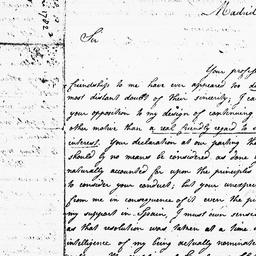 1782
Madrid
Sir
Your profes
friendship to me have ever appeared too
most distant doubt of their sincerity; I ca
your opposition to my design of continuing
other motive than a real friendly regard to
interest. Your declaration at our parting th
should by no means be considered as done
naturally accounted for upon the principles
to consider your conduct; but your unexpec
from me in consequence of it even the pi
my support in Spain, I must own sense
as that resolution was taken at a time
intelligence of my being actually nominate